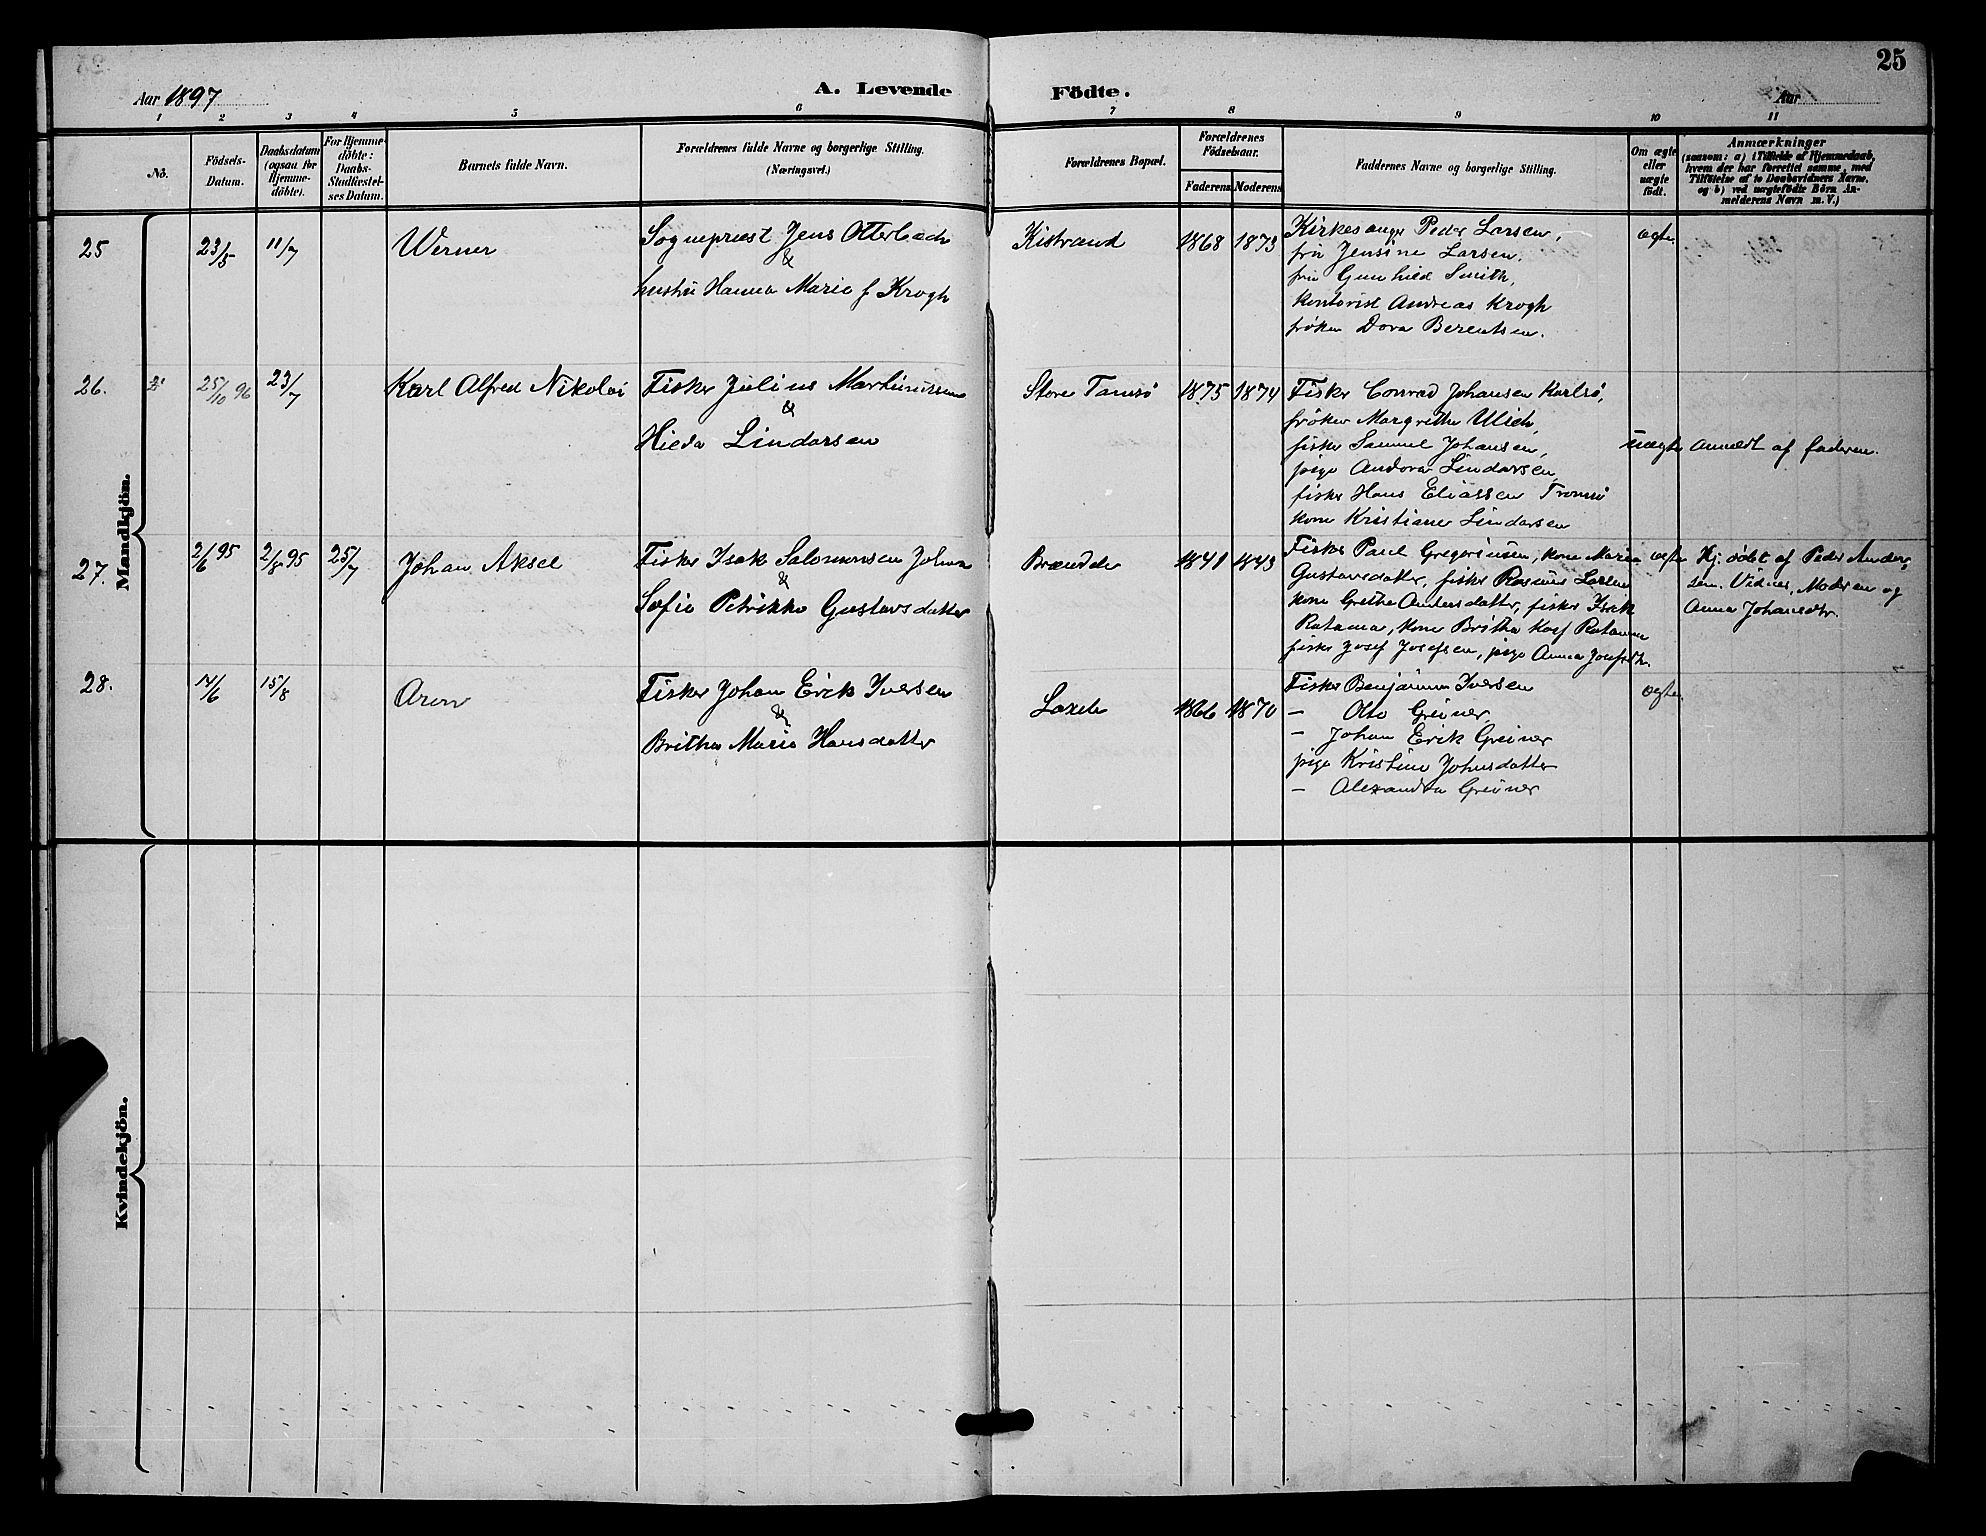 25
Aar 1897
A. Levende Födte.
Aar
1 2 3 4 5 6 7 8 9 10 11
No.
Födsels-Datum.
Daabsdatum (ogsaa for Hjemme-döbte).
For Hjemme-döbte: Daabs-Stadfæstel-ses Datum.
Barnets fulde Navn.
Forældrenes fulde Navne og borgerlige Stilling.
(Næringsvei.)
Forældrenes Bopæl.
Forældrenes Födselsaar.
Faderens Moderens
Faddernes Navne og borgerlige Stilling.
Om ægte eller uægte födt.
Anmærkninger
(saasom: a) i Tilfælde af Hjemmedaab,
hvem der har forrettet samme, med
Tilföielse af to Daabsvidners Navne,
og b) ved uægtefödte Börn An-
melderens Navn m. V.)
Mandkjön.
25 23/5 11/7 Werner
Sogneprest Jens Otterbech
&
hustru Hanna Marie f Krogh
Kistrand 1868 1873
Kirkesanger Peder Larsen,
fru Jensine Larsen.
fru Gunhild Smith,
Kontorist Andreas Krogh
frøken Dora Berentsen.
ægte.
26. 25/10 96 23/7 Karl Alfred Nikolai
Fisker Julius Martinussen
&
Hilda Lindarsen
Store Tamsö 1875 1874
Fisker Conrad Johansen Karlsö,
frøken Margrethe Ulich,
fisker Samuel Johansen,
pige Andora Lindarsen
fisker Hans Eliassen Tromsö
kone Kristiane Lindarsen
uægte anmeldt af faderen.
27. 2/6 95 2/8 95 25/7 Johan Aksel
Fisker Isak Salomonsen Johnsa
&
Sofie Petrikke Gustavsdatter
Brænde 1841 1843
Fisker Paul Gregoriusen, kone Maria
Gustavsdatter, fisker Rasmus Larsen
kone Grethe Andersdatter, fisker Isak
Ratama, kone Britha Kasf Ratama
fisker Josef Josefsen, pige Anna Josefsdtr.
ægte
Hj. døbt af Peder Ander-
sen. Vidner, Moderen og
Anna Johansdtr.
28. 14/6 15/8 Aron
Fisker Johan Erik Iversen
&
Britha Maria Hansdatter
Laxelv 1866 1870
Fisker Benjamin Iversen
— Otto Greiner
— Johan Erik Greiner
pige Kristine Johnsdatter
— Alexandra Greiner
ægte.
Kvindekjön.